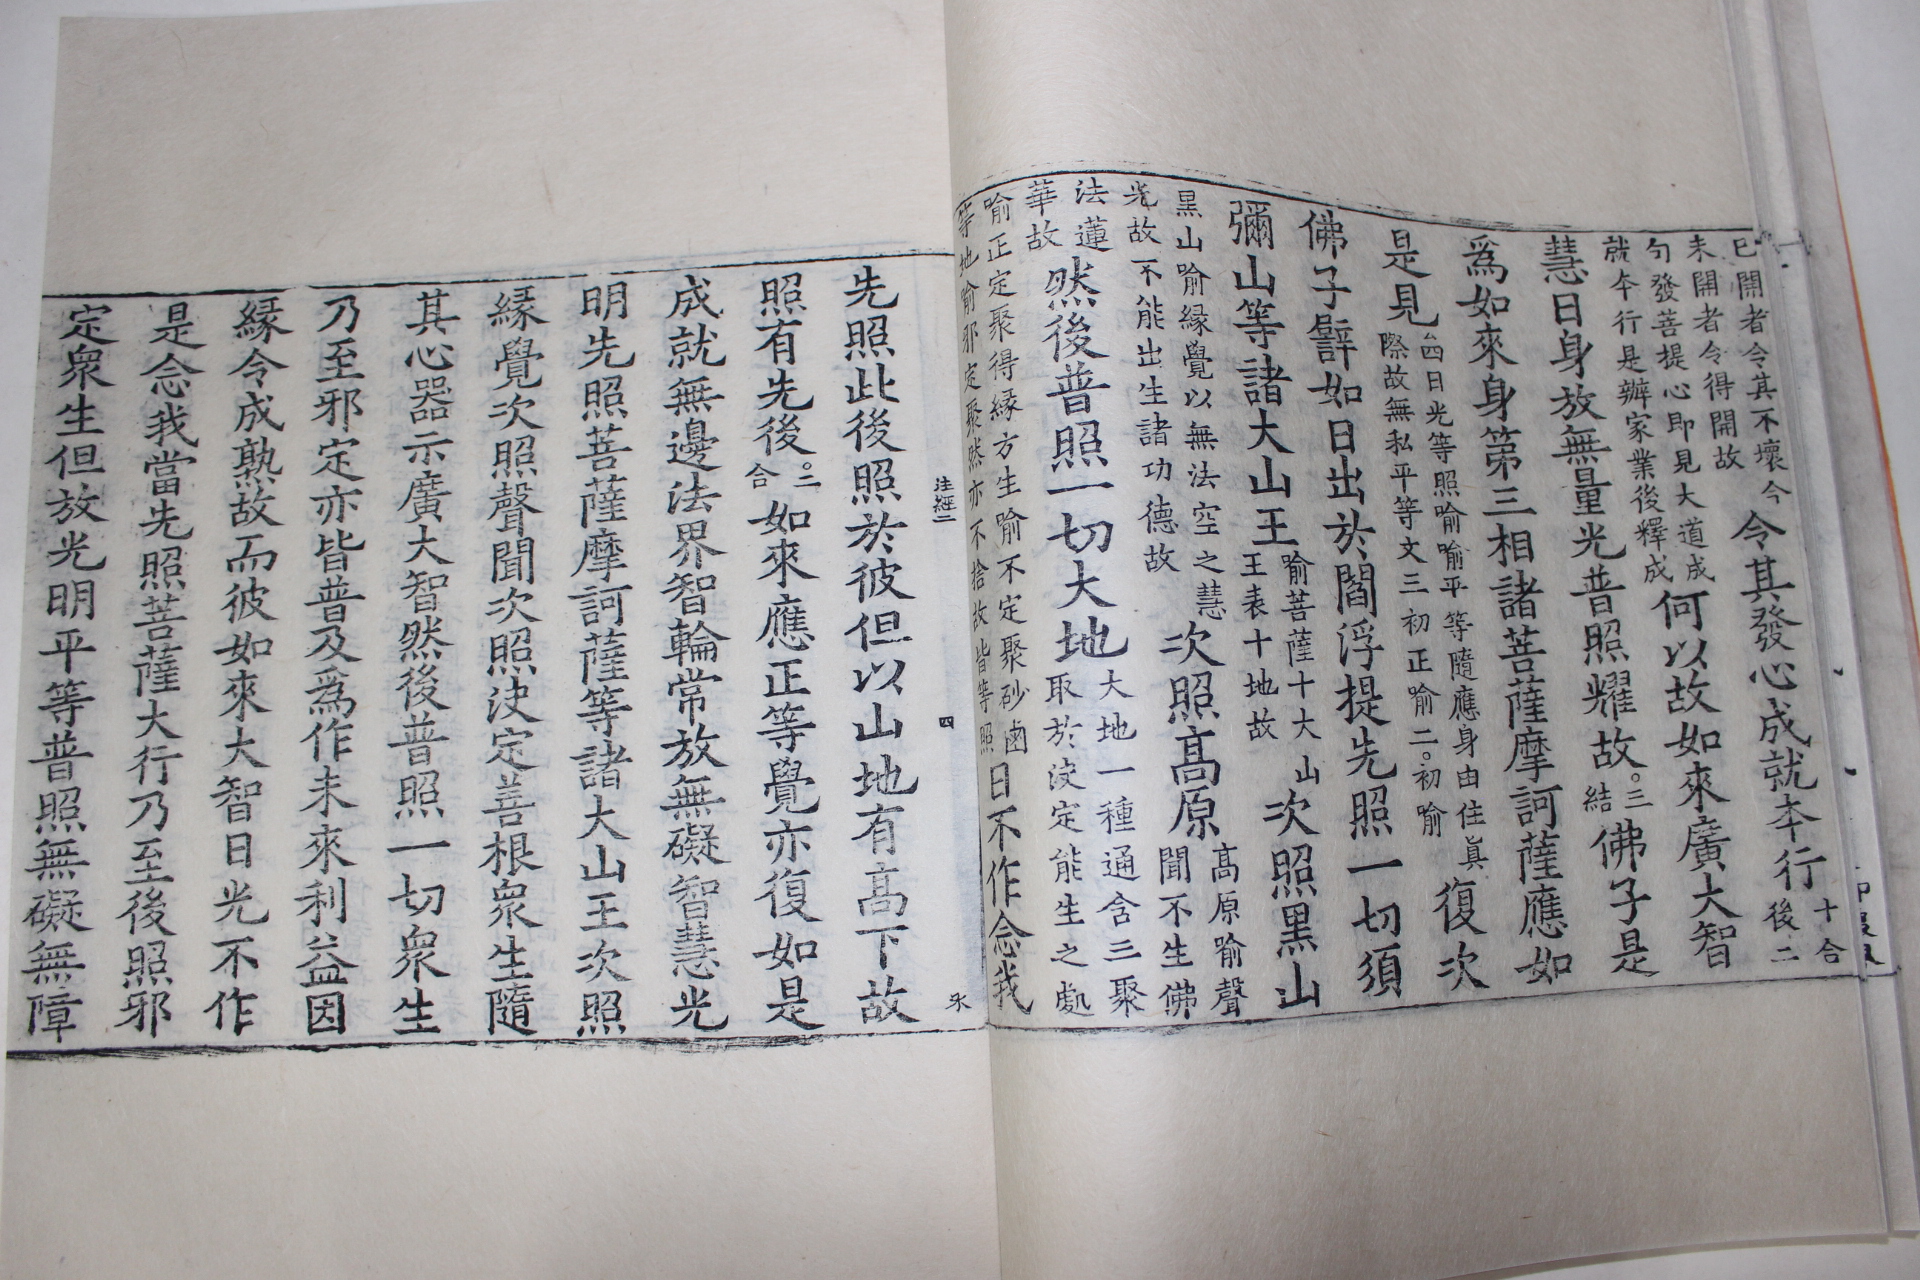 已開者令其不壞今
未開者令得開故
句發菩提心即見大道成
就本行是辦家業後釋成
令其發心成就本行
十合
後二
何以故如來廣大智
慧日身放無量光普照耀故
三
結
佛子是
爲如來身第三相諸菩薩摩訶薩應如
是見
四日光等照喻喻平等隨應身由住眞
際故無私平等文三初正喻二初喻
復次
佛子譬如日出於閻浮提先照一切須
彌山等諸大山王
喻菩薩十大山
王表十地故
次照黑山
黑山喻緣覺以無法空之慧
光故不能出生諸功德故
次照高原
高原喻聲
聞不生佛
法蓮
華故
然後普照一切大地
大地一種通含三聚
取於決定能生之處
喻正定聚得緣方生喻不定聚砂鹵
等地喻邪定聚然亦不捨故皆等照
日不作念我
注經二
四
先照此後照於彼但以山地有高下故
照有先後
二
合
如來應正等覺亦復如是
成就無邊法界智輪常放無礙智慧光
明先照菩薩摩訶薩等諸大山王次照
緣覺次照聲聞次照決定善根衆生隨
其心器示廣大智然後普照一切衆生
乃至邪定亦皆普及爲作未來利益因
緣令成熟故而彼如來大智日光不作
是念我當先照菩薩大行乃至後照邪
定衆生但放光明平等普照無礙無障